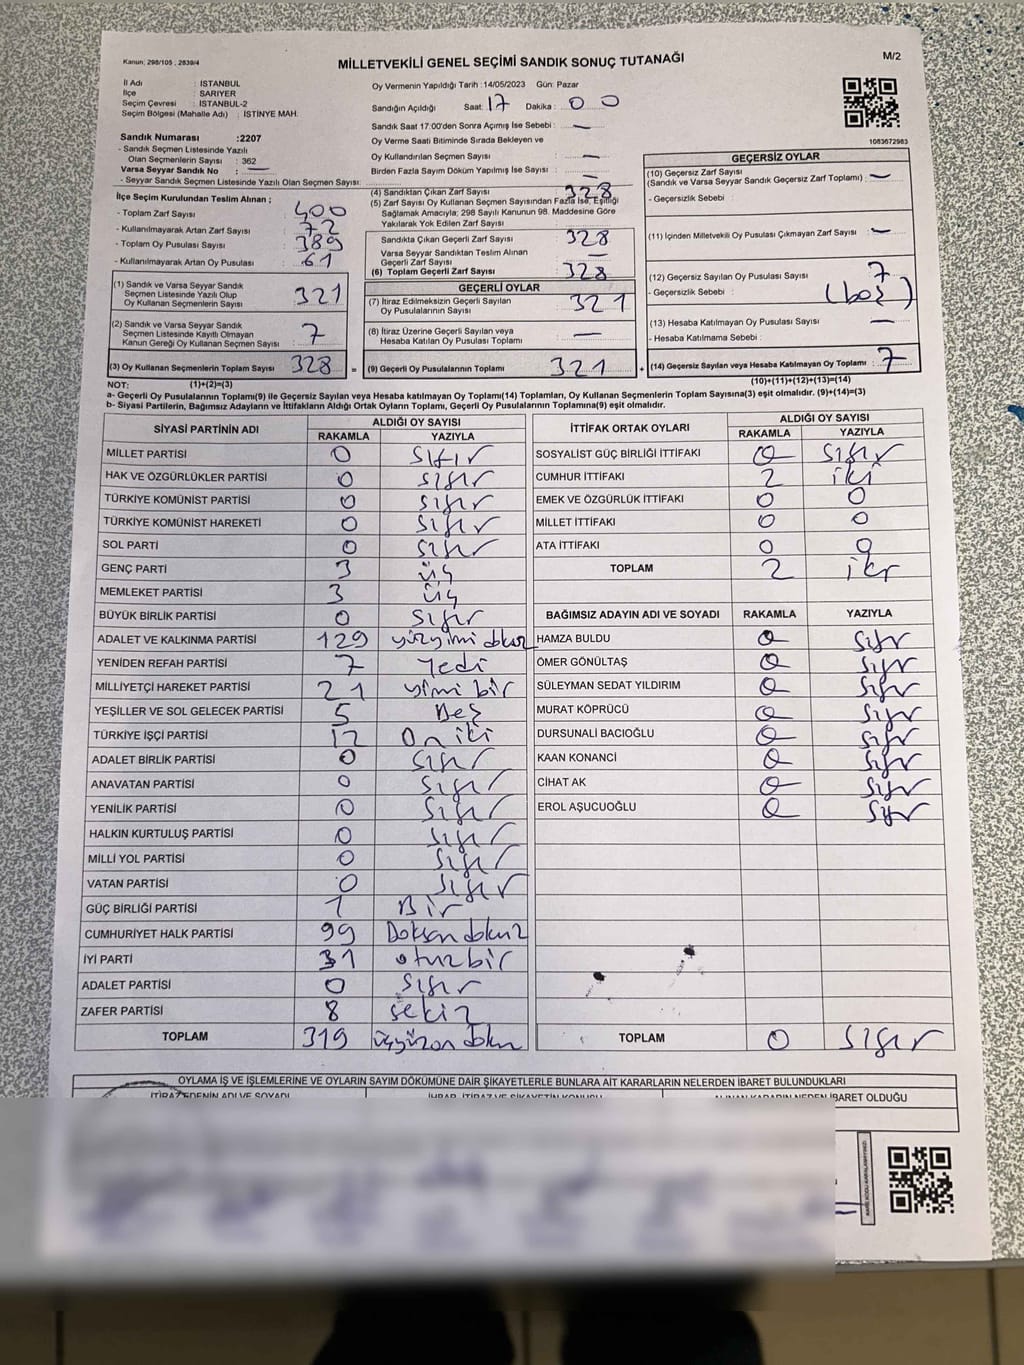 Kanun; 298/105 , 2839/4
MİLLETVEKİLİ GENEL SEÇİMİ SANDIK SONUÇ TUTANAĞI
M/2
İl Adı : ISTANBUL
İlçe : SARIYER
Seçim Çevresi : ISTANBUL-2
Seçim Bölgesi (Mahalle Adı) : ISTİNYE MAH.
Sandık Numarası :2207
- Sandık Seçmen Listesinde Yazılı
Olan Seçmenlerin Sayısı : 362
Varsa Seyyar Sandık No : —
- Seyyar Sandık Seçmen Listesinde Yazılı Olan Seçmen Sayısı:
İlçe Seçim Kurulundan Teslim Alınan ;
- Toplam Zarf Sayısı : 400
- Kullanılmayarak Artan Zarf Sayısı : 72
- Toplam Oy Pusulası Sayısı : 389
- Kullanılmayarak Artan Oy Pusulası : 61
(1) Sandık ve Varsa Seyyar Sandık
Seçmen Listesinde Yazılı Olup
Oy Kullanan Seçmenlerin Sayısı : 321
(2) Sandık ve Varsa Seyyar Sandık
Seçmen Listesinde Kayıtlı Olmayan
Kanun Gereği Oy Kullanan Seçmen Sayısı : 7
(3) Oy Kullanan Seçmenlerin Toplam Sayısı : 328 =
Oy Vermenin Yapıldığı Tarih :14/05/2023 Gün: Pazar
Sandığın Açıldığı Saat: 17 Dakika : 00
Sandık Saat 17:00'den Sonra Açımış İse Sebebi : —
Oy Verme Saati Bitiminde Sırada Bekleyen ve
Oy Kullandırılan Seçmen Sayısı : —
Birden Fazla Sayım Döküm Yapılmış İse Sayısı : —
(4) Sandıktan Çıkan Zarf Sayısı : 328
(5) Zarf Sayısı Oy Kullanan Seçmen Sayısından Fazla İse, Eşitliği
Sağlamak Amacıyla; 298 Sayılı Kanunun 98. Maddesine Göre
Yakılarak Yok Edilen Zarf Sayısı :
Sandıkta Çıkan Geçerli Zarf Sayısı : 328
Varsa Seyyar Sandıktan Teslim Alınan
Geçerli Zarf Sayısı : —
(6) Toplam Geçerli Zarf Sayısı : 328
GEÇERLİ OYLAR
(7) İtiraz Edilmeksizin Geçerli Sayılan
Oy Pusulalarının Sayısı : 321
(8) İtiraz Üzerine Geçerli Sayılan veya
Hesaba Katılan Oy Pusulası Toplamı : —
(9) Geçerli Oy Pusulalarının Toplamı : 321 +
1083672983
GEÇERSİZ OYLAR
(10) Geçersiz Zarf Sayısı
(Sandık ve Varsa Seyyar Sandık Geçersiz Zarf Toplamı) : —
- Geçersizlik Sebebi :
(11) İçinden Milletvekili Oy Pusulası Çıkmayan Zarf Sayısı : —
(12) Geçersiz Sayılan Oy Pusulası Sayısı : 7
- Geçersizlik Sebebi : (boş)
(13) Hesaba Katılmayan Oy Pusulası Sayısı : —
- Hesaba Katılmama Sebebi :
(14) Geçersiz Sayılan veya Hesaba Katılmayan Oy Toplamı : 7
NOT: (1)+(2)=(3)
(10)+(11)+(12)+(13)=(14)
a- Geçerli Oy Pusulalarının Toplamı(9) ile Geçersiz Sayılan veya Hesaba katılmayan Oy Toplamı(14) Toplamları, Oy Kullanan Seçmenlerin Toplam Sayısına(3) eşit olmalıdır. (9)+(14)=(3)
b- Siyasi Partilerin, Bağımsız Adayların ve İttifakların Aldığı Ortak Oyların Toplamı, Geçerli Oy Pusulalarının Toplamına(9) eşit olmalıdır.
SİYASİ PARTİNİN ADI ALDIĞI OY SAYISI
RAKAMLA YAZIYLA
MİLLET PARTİSİ 0 sıfır
HAK VE ÖZGÜRLÜKLER PARTİSİ 0 sıfır
TÜRKİYE KOMÜNİST PARTİSİ 0 sıfır
TÜRKİYE KOMÜNİST HAREKETİ 0 sıfır
SOL PARTİ 0 sıfır
GENÇ PARTİ 3 üç
MEMLEKET PARTİSİ 3 üç
BÜYÜK BİRLİK PARTİSİ 0 sıfır
ADALET VE KALKINMA PARTİSİ 129
YENİDEN REFAH PARTİSİ 7 Yedi
MİLLİYETÇİ HAREKET PARTİSİ 21 yimi bir
YEŞİLLER VE SOL GELECEK PARTİSİ 5 Beş
TÜRKİYE İŞÇİ PARTİSİ 12 On iki
ADALET BİRLİK PARTİSİ 0 sıfır
ANAVATAN PARTİSİ 0 sıfır
YENİLİK PARTİSİ 0 sıfır
HALKIN KURTULUŞ PARTİSİ 0 sıfır
MİLLİ YOL PARTİSİ 0 sıfır
VATAN PARTİSİ 0 sıfır
GÜÇ BİRLİĞİ PARTİSİ 1 Bir
CUMHURİYET HALK PARTİSİ 99 Doksan dokuz
İYİ PARTİ 31 otuz bir
ADALET PARTİSİ 0 sıfır
ZAFER PARTİSİ 8 sekiz
TOPLAM 319
İTTİFAK ORTAK OYLARI ALDIĞI OY SAYISI
RAKAMLA YAZIYLA
SOSYALİST GÜÇ BİRLİĞİ İTTİFAKI 0 sıfır
CUMHUR İTTİFAKI 2 iki
EMEK VE ÖZGÜRLÜK İTTİFAKI 0 0
MİLLET İTTİFAKI 0 0
ATA İTTİFAKI 0 0
TOPLAM 2 iki
BAĞIMSIZ ADAYIN ADI VE SOYADI RAKAMLA YAZIYLA
HAMZA BULDU 0 sıfır
ÖMER GÖNÜLTAŞ 0 sıfır
SÜLEYMAN SEDAT YILDIRIM 0 sıfır
MURAT KÖPRÜCÜ 0 sıfır
DURSUNALİ BACIOĞLU 0 sıfır
KAAN KONANCİ 0 sıfır
CİHAT AK 0 sıfır
EROL AŞUCUOĞLU 0 sıfır
TOPLAM 0 sıfır
OYLAMA İŞ VE İŞLEMLERİNE VE OYLARIN SAYIM DÖKÜMÜNE DAİR ŞİKAYETLERLE BUNLARA AİT KARARLARIN NELERDEN İBARET BULUNDUKLARI
İTİRAZ EDENİN ADI VE SOYADI İHBAR, İTİRAZ VE ŞİKAYETİN KONUSU ALINAN KARARIN NEDEN İBARET OLDUĞU